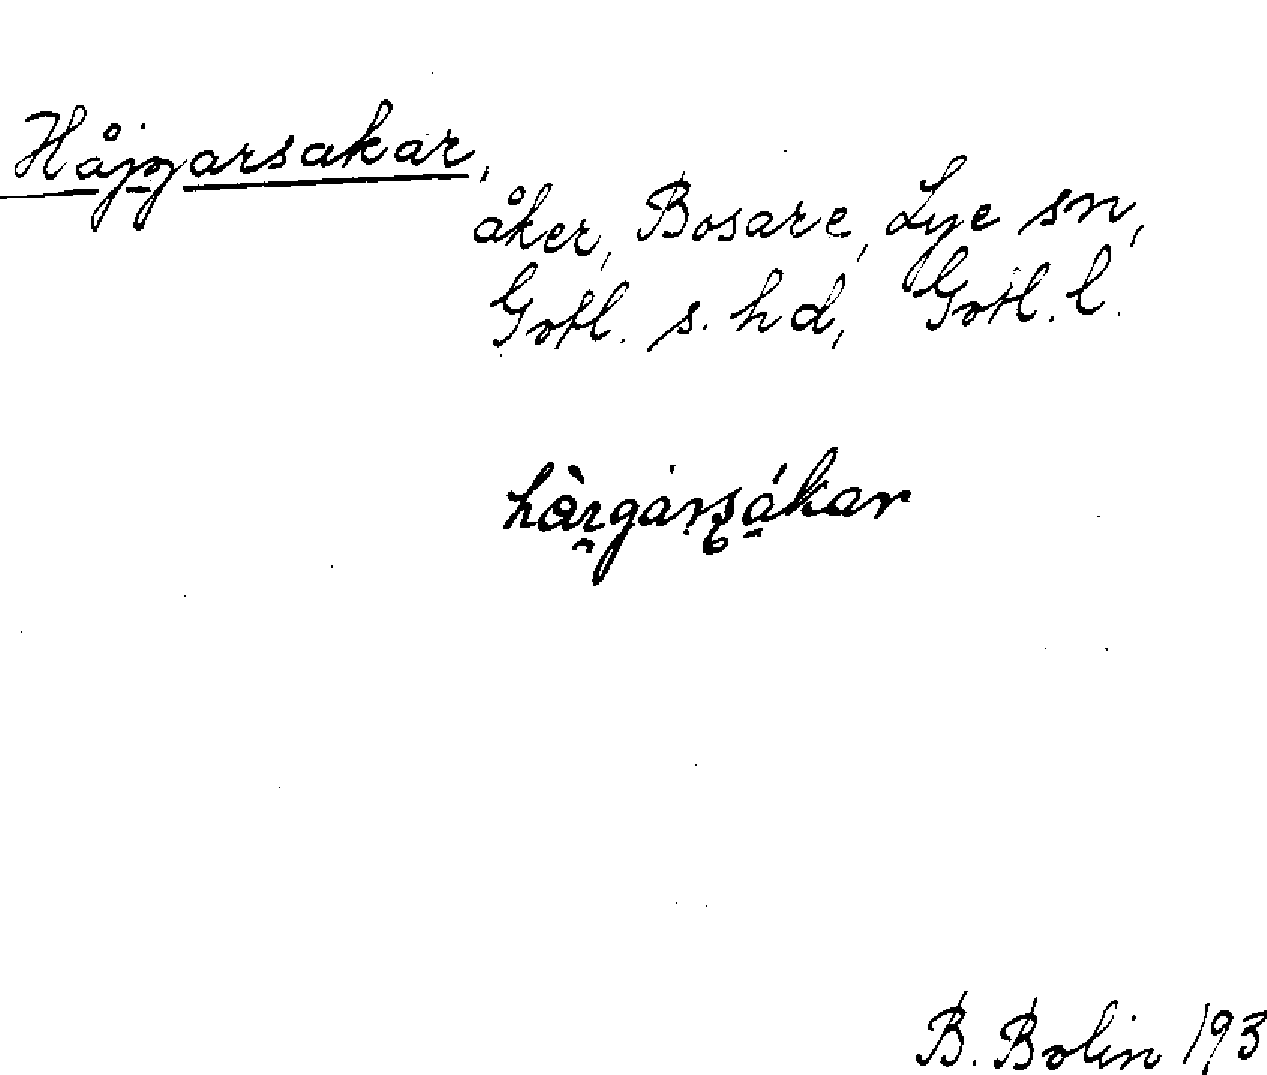 Håjgarsakar,
åker, Bosare, Lye sn,
Gotl. s. hd, Gotl. l.
B. Bolin 193